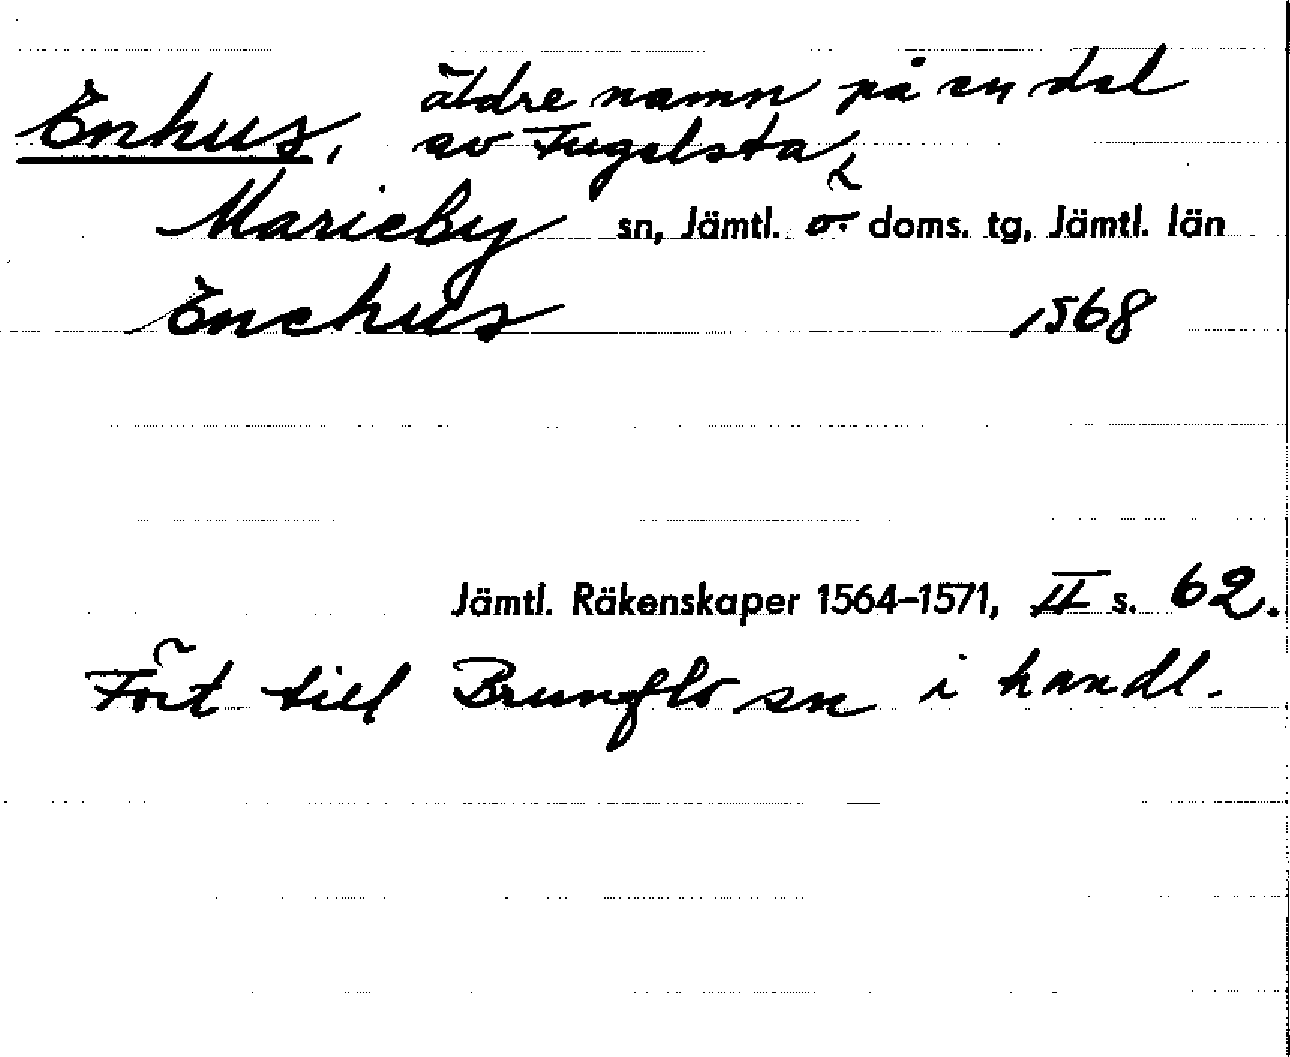 Enhus, äldre namn på en del
av Fugelsta,
Marieby sn, Jämtl. ö. doms. tg, Jämtl. län
Enehus 1568
Jämtl. Räkenskaper 1564–1571, II s. 62.
Fört till Brunflo sn i handl.